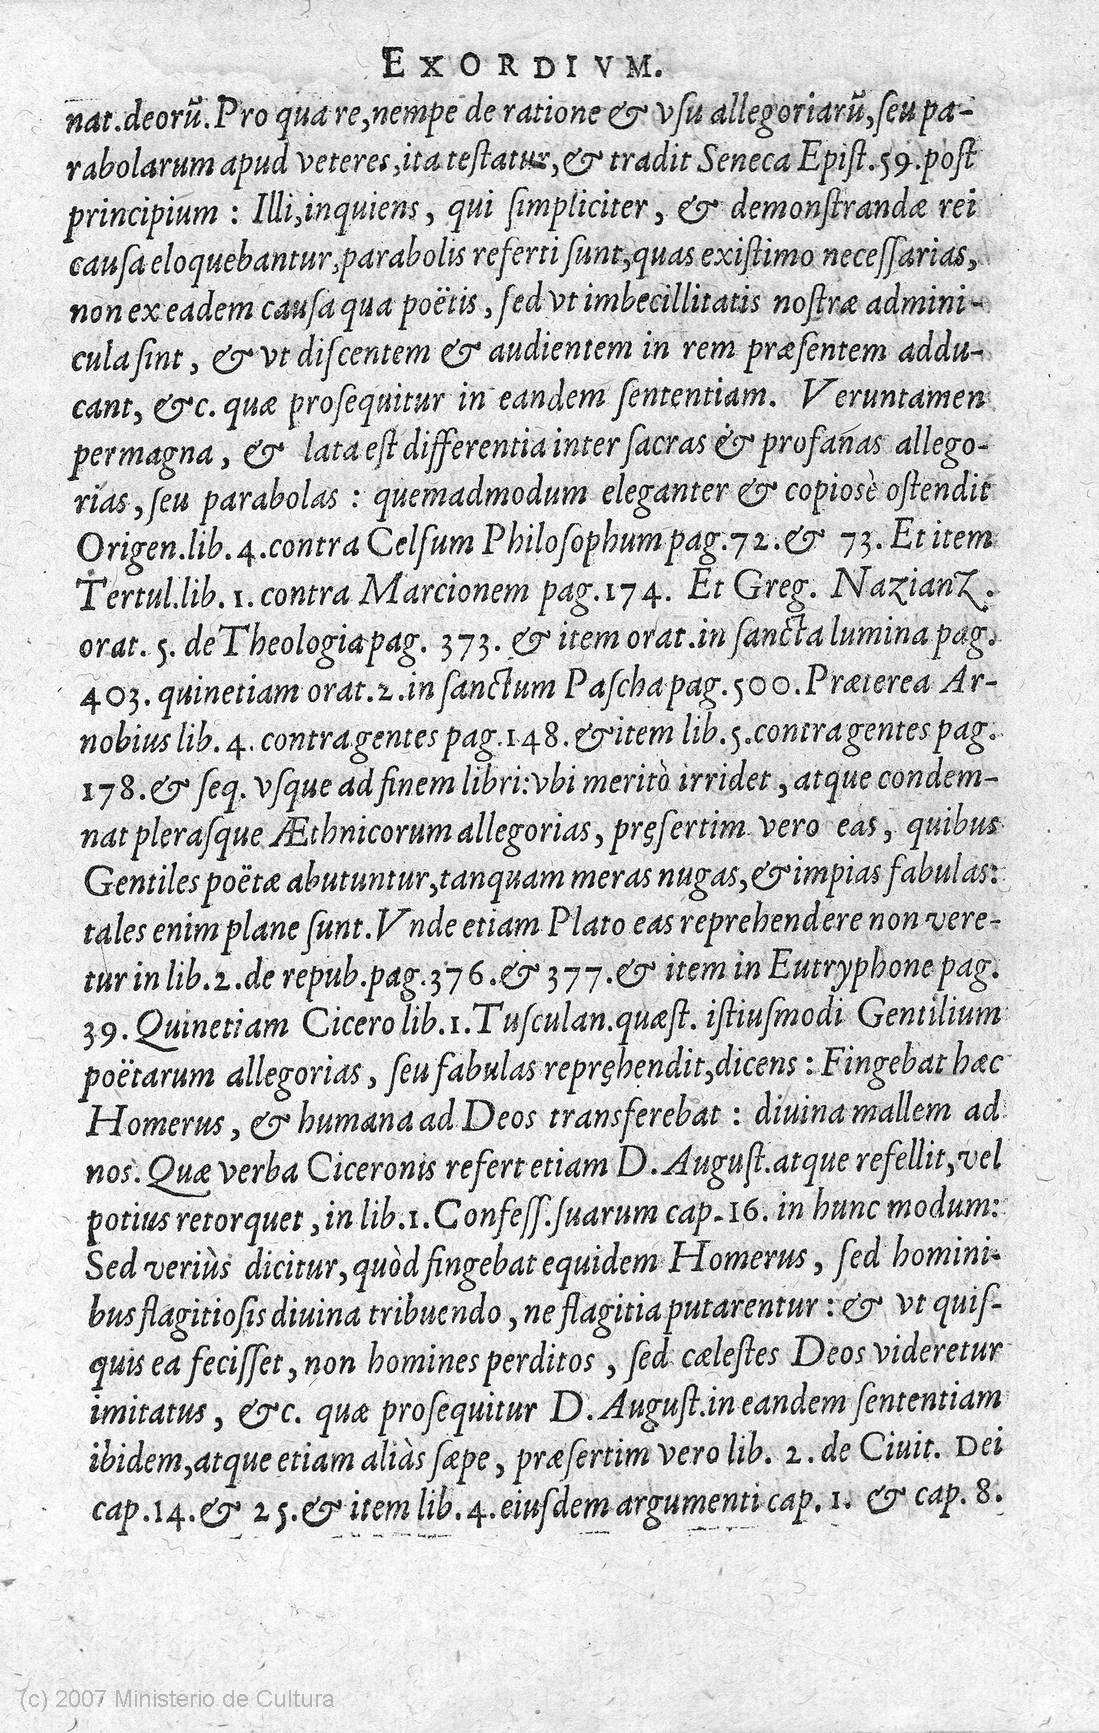 EXORDIVM.
nat.deorũ.Pro qua re,nempe de ratione & vſu allegoriarũ,ſeu pa-
rabolarum apud veteres,ita teſtatur,& tradit Seneca Epiſt.59.poſt
principium : Illi,inquiens, qui ſimpliciter, & demonſtrandæ rei
cauſa eloquebantur,parabolis referti ſunt,quas exiſtimo neceſſarias,
non ex eadem cauſa qua poëtis, ſed vt imbecillitatis noſtræ admini-
cula ſint, & vt diſcentem & audientem in rem præſentem addu-
cant, &c. quæ proſequitur in eandem ſententiam. Veruntamen
permagna, & lata eſt differentia inter ſacras & profanas allego-
rias, ſeu parabolas : quemadmodum eleganter & copioſè oſtendit
Origen.lib. 4.contra Celſum Philoſophum pag.72.& 73. Et item
Tertul.lib. 1. contra Marcionem pag.174. Et Greg. Nazianz.
orat. 5. de Theologia pag. 373. & item orat.in ſancta lumina pag.
403. quinetiam orat.2.in ſanctum Paſcha pag.500.Præterea Ar-
nobius lib. 4. contra gentes pag.148.& item lib.5.contra gentes pag.
178.& ſeq. vſque ad finem libri:vbi meritò irridet, atque condem-
nat pleraſque Æthnicorum allegorias, pręſertim vero eas, quibus
Gentiles poëtæ abutuntur,tanquam meras nugas,& impias fabulas:
tales enim plane ſunt.Vnde etiam Plato eas reprehendere non vere-
tur in lib.2.de repub.pag.376.& 377.& item in Eutryphone pag.
39. Quinetiam Cicero lib.1.Tuſculan.quæſt. iſtiuſmodi Gentilium
poëtarum allegorias, ſeu fabulas repręhendit,dicens : Fingebat hæc
Homerus, & humana ad Deos transferebat : diuina mallem ad
nos. Quæ verba Ciceronis refert etiam D.Auguſt.atque refellit,vel
potius retorquet, in lib.1.Confeſſ.ſuarum cap.16. in hunc modum:
Sed veriùs dicitur,quòd fingebat equidem Homerus, ſed homini-
bus flagitioſis diuina tribuendo, ne flagitia putarentur : & vt quiſ-
quis ea feciſſet, non homines perditos, ſed cæleſtes Deos videretur
imitatus, &c. quæ proſequitur D. Auguſt.in eandem ſententiam
ibidem,atque etiam aliàs ſæpe, præſertim vero lib. 2. de Ciuit. Dei
cap.14.& 25.& item lib.4.eiuſdem argumenti cap. 1. & cap. 8.
(c) 2007 Ministerio de Cultura